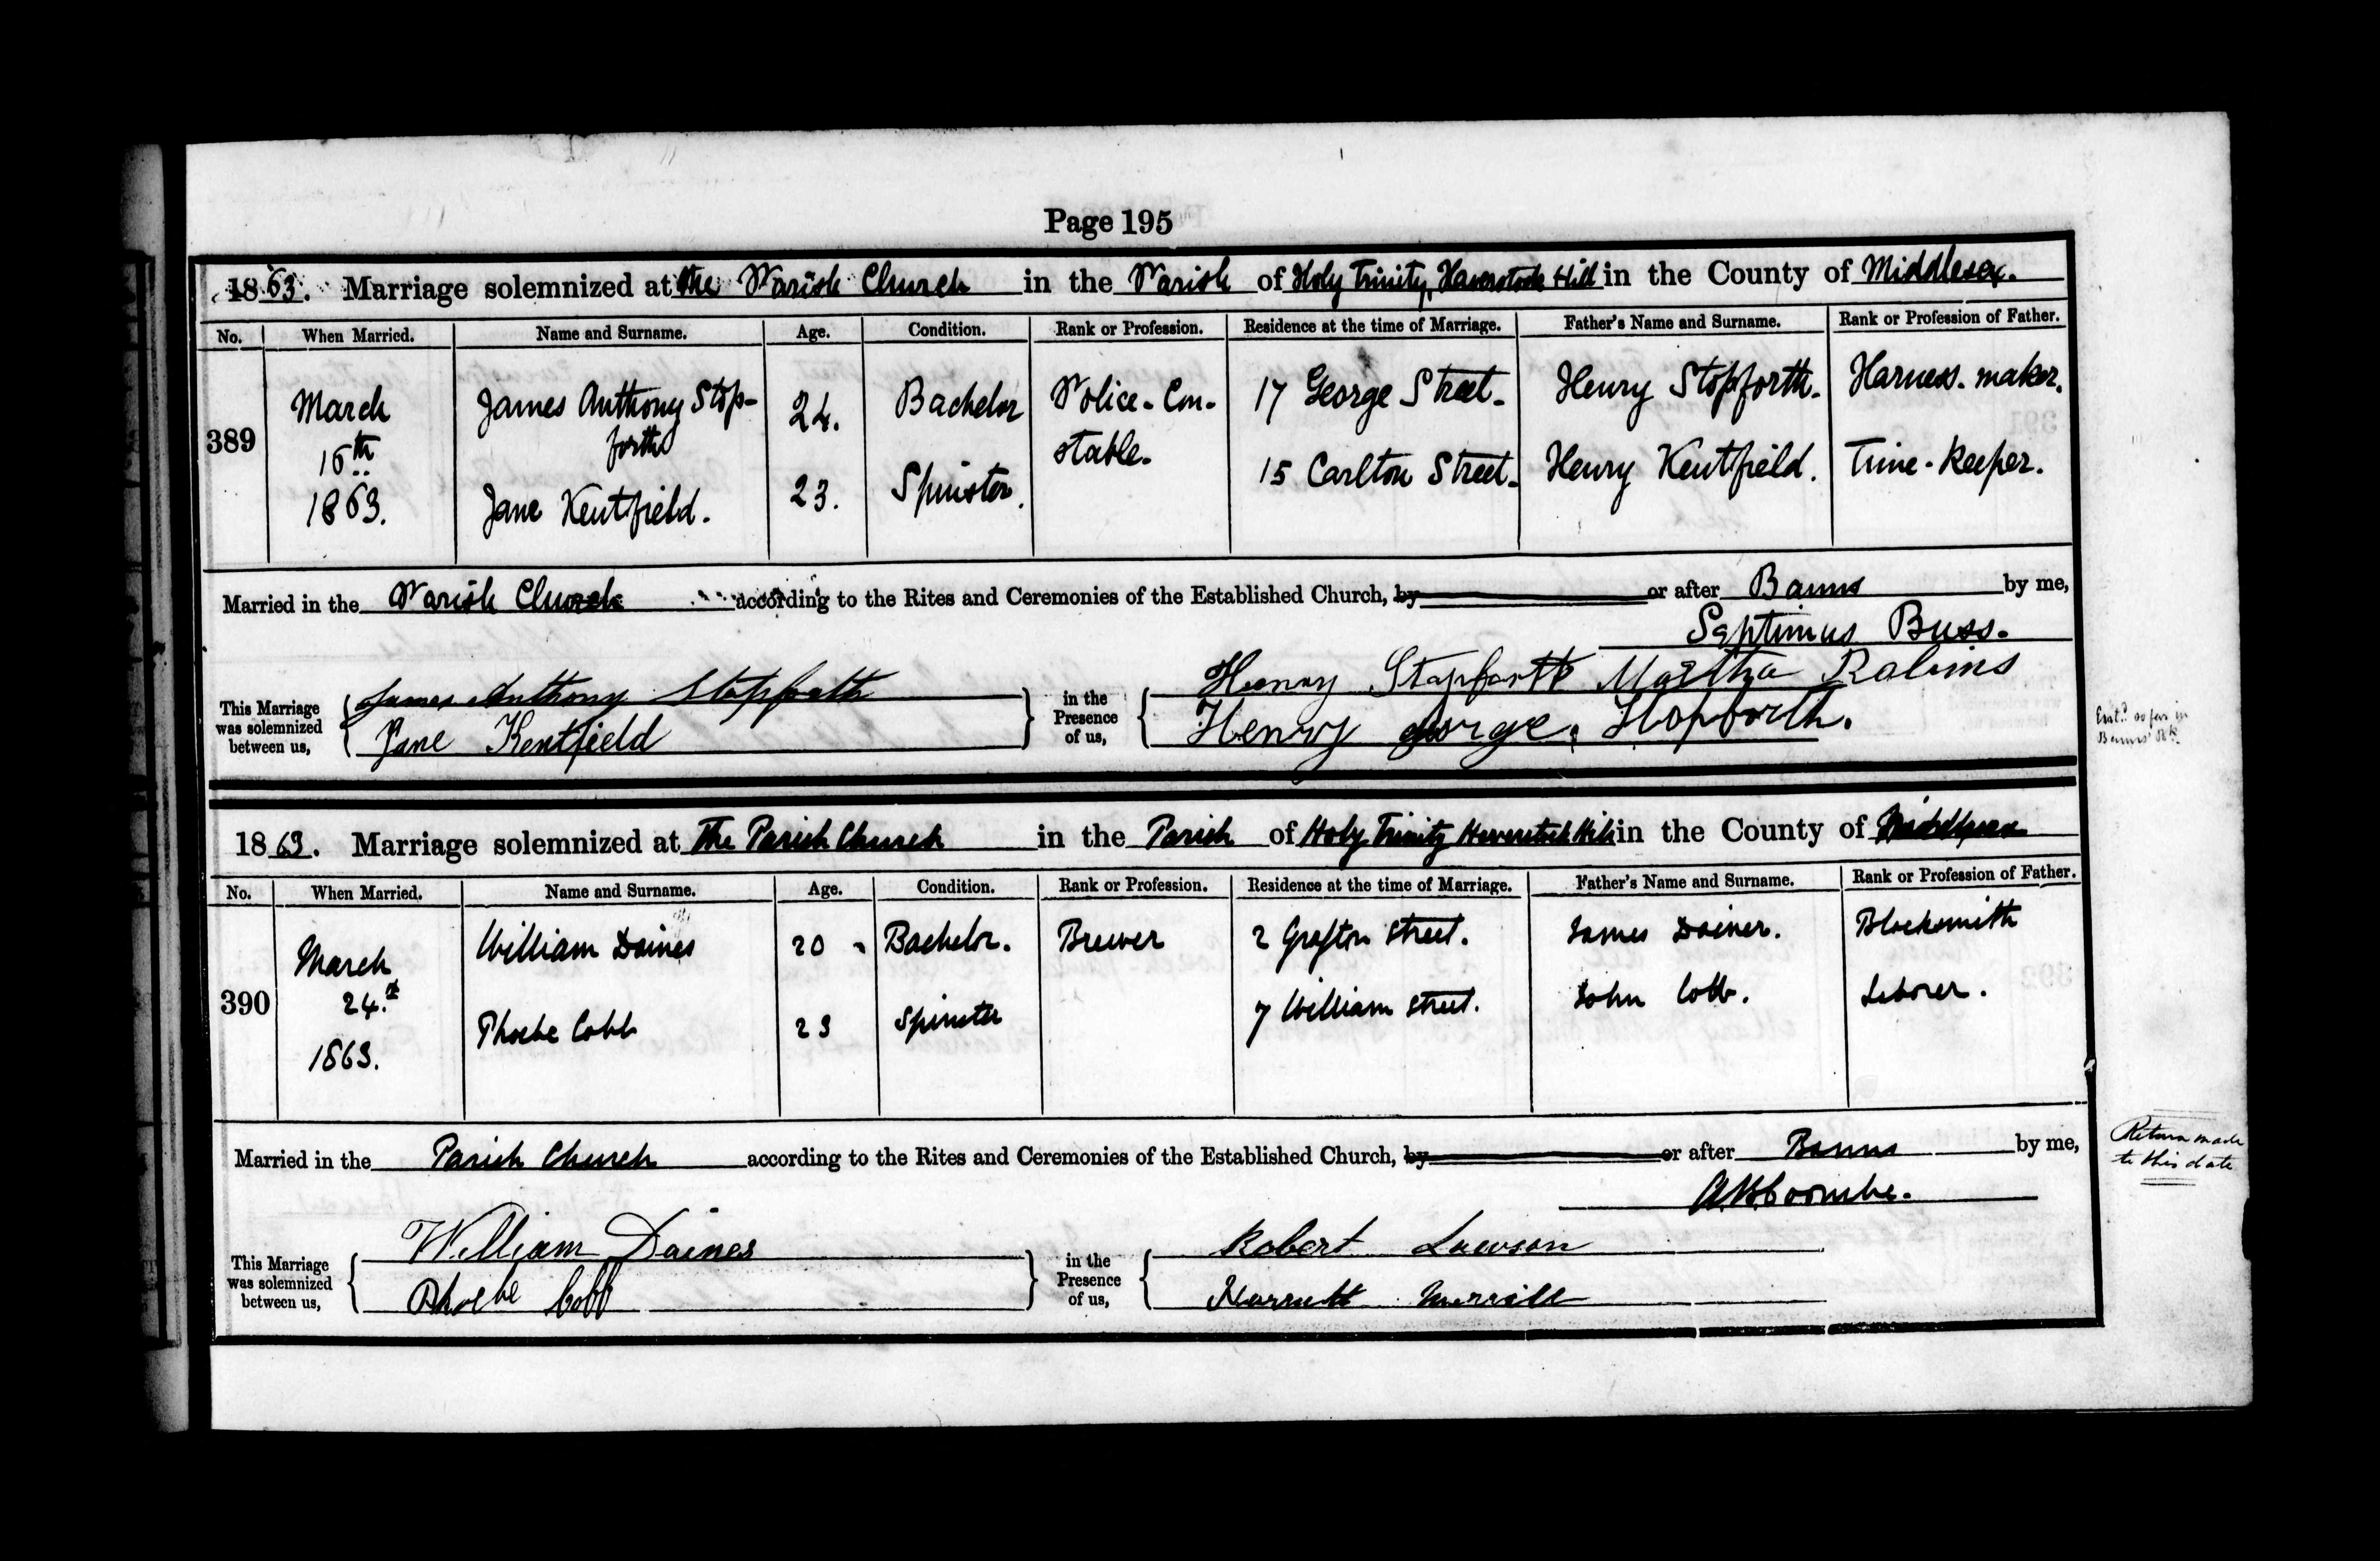 Page 195
1863. Marriage solemnized at the Parish Church in the Parish of Holy Trinity, Haverstock Hill in the County of Middlesex.
No. When Married. Name and Surname. Age. Condition. Rank or Profession. Residence at the time of Marriage. Father's Name and Surname. Rank or Profession of Father.
389
March
16th
1863.
James Anthony Stop-
forth
24.
Bachelor
Police-Con-
stable.
17 George Street.
Henry Stopforth.
Harness-maker.
Jane Kentfield.
23.
Spinster.
15 Carlton Street.
Henry Kentfield.
Time-Keeper.
Married in the Parish Church according to the Rites and Ceremonies of the Established Church, by or after Banns by me,
Septimus Buss.
This Marriage
was solemnized
between us,
James Anthony Stopforth
Jane Kentfield
in the
Presence
of us,
Henry Stopforth Martha Robins
Henry george. Stopforth.
Ent.d so far in
Banns' Bk.
1863. Marriage solemnized at The Parish Church in the Parish of Holy Trinity Haverstock Hill in the County of Middlesex
No. When Married. Name and Surname. Age. Condition. Rank or Profession. Residence at the time of Marriage. Father's Name and Surname. Rank or Profession of Father.
390
March
24.th
1863.
William Daines
20
Bachelor.
Brewer
2 Grafton Street.
James Daines.
Blacksmith
Phoebe Cobb
23
Spinster
7 William Street.
John Cobb.
Laborer.
Married in the Parish Church according to the Rites and Ceremonies of the Established Church, by or after Banns by me,
Coombe.
This Marriage
was solemnized
between us,
William Daines
Phoebe Cobb
in the
Presence
of us,
Robert Lawson
Harriett Merrill
Return made
to this date